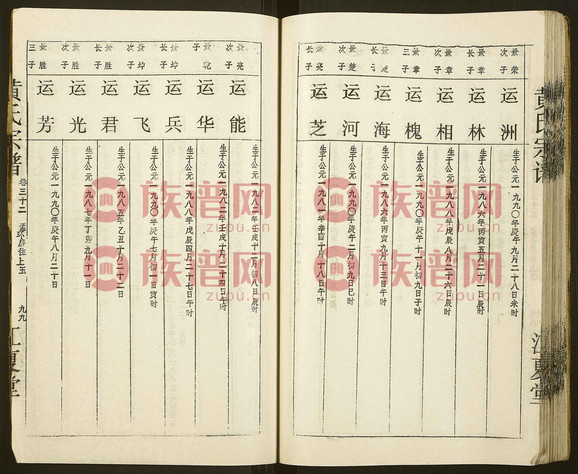 黄氏宗谱
江夏堂
次子
运洲
生于公元一九九〇年庚午九月二十八日未时
长子
运林
生于公元一九八六年丙寅五月二十一日辰时
次子
运相
生于公元一九八八年戊辰八月二十六日辰时
三子
运槐
生于公元一九九〇年庚午九月初九日子时
长子
运海
生于公元一九八六年丙寅十月十三日午时
次子
运河
生于公元一九九〇年庚午二月初九日巳时
长子
运芝
生于公元一九八一年辛酉十月十八日午时
次子
运能
生于公元一九八二年壬戌十一月初八日辰时
子
运华
生于公元一九八二年壬戌十月二十四日
长子
运兵
生于公元一九八八年戊辰四月二十七日午时
次子
运飞
生于公元一九九〇年庚午七月初一日寅时
长子
运君
生于公元一九八五年乙丑十月二十二日
次子
运光
生于公元一九八七年丁卯九月十一日
三子
运芳
生于公元一九九〇年庚午八月二十日
黄氏宗谱
卷三十二
九九
江夏堂
族普网
zupu.cn
族普网
zupu.cn
族普网
zupu.cn
族普网
zupu.cn